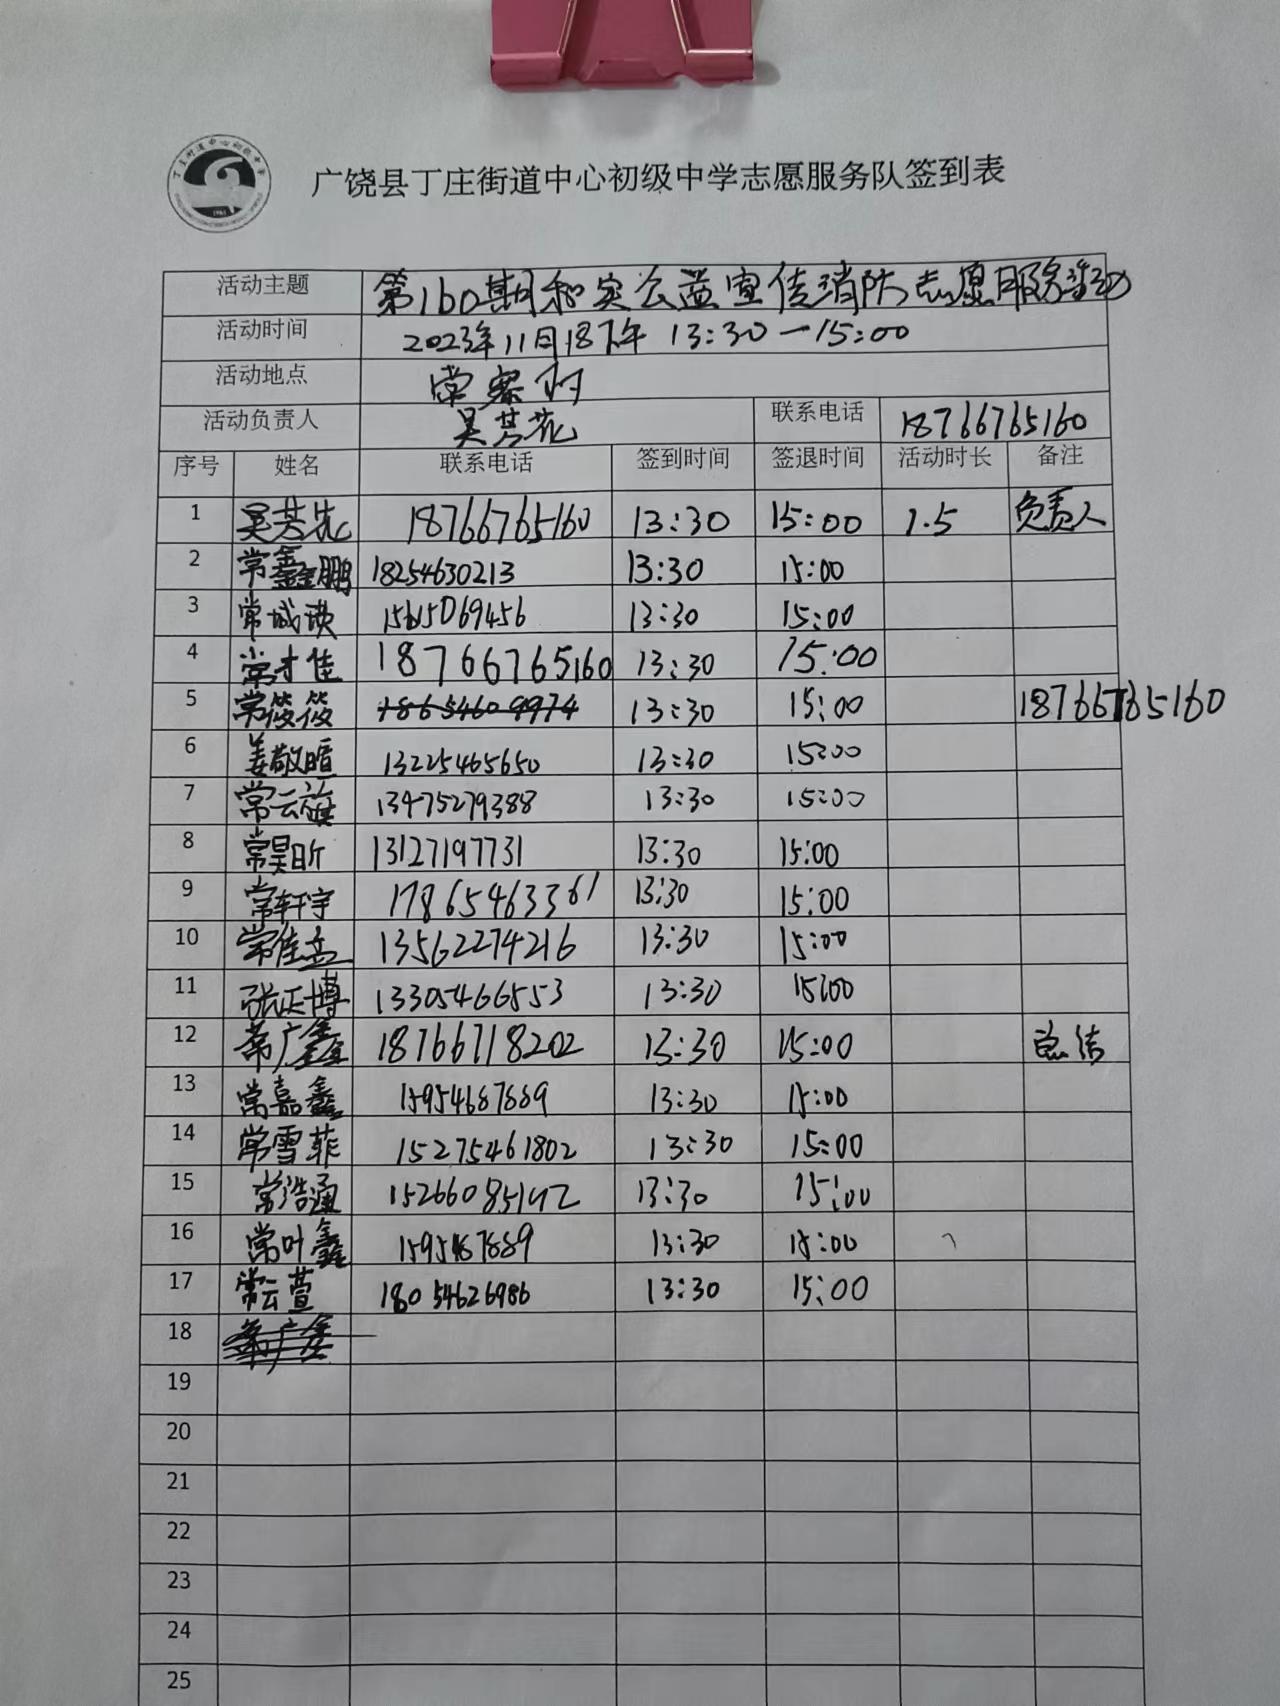 广饶县丁庄街道中心初级中学志愿服务队签到表
活动主题 第160期和实公益宣传消防志愿服务活动
活动时间 2023年11月18下午 13:30—15:00
活动地点 常寨村
活动负责人 吴芳花 联系电话 18766765160
序号 姓名 联系电话 签到时间 签退时间 活动时长 备注
1 吴芳花 18766765160 13:30 15:00 1.5 负责人
2 常鑫鹏 18254630213 13:30 15:00
3 常城瑛 15615069456 13:30 15:00
4 常才佳 18766765160 13:30 15:00
5 常筱筱 18654609974 13:30 15:00 18766765160
6 姜敬暄 13225465650 13:30 15:00
7 常云旗 13475279388 13:30 15:00
8 常昊昕 13127197731 13:30 15:00
9 常轩宇 17865463361 13:30 15:00
10 常佳孟 13562274216 13:30 15:00
11 张正博 13305466553 13:30 15:00
12 常广鑫 18766718202 13:30 15:00 总结
13 常嘉鑫 15954687889 13:30 15:00
14 常雪菲 15275461802 13:30 15:00
15 常浩通 15266085142 13:30 15:00
16 常叶鑫 1595487889 13:30 15:00
17 常云萱 18054626986 13:30 15:00
18
19
20
21
22
23
24
25